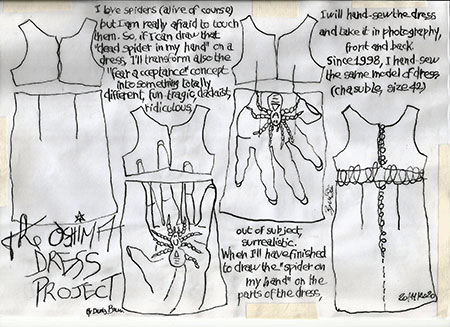 I love spiders (alive of course)
but I am really afraid to touch
them. So, if I can draw that
"dead spider in my hand" on a
dress, I'll transform also the
"fear acceptance" concept
into something totally
different, fun, tragic, dadaist,
ridiculous,
out of subject,
surrealistic.
When I'll have finished
to draw the "spider on
my hand" on the
parts of the dress,
I will hand-sew the dress
and take it in photography,
front and back
Since 1998, I hand-sew
the same model of dress
(chasuble, size 42)
the OSHIMA
DRESS
PROJECT
By